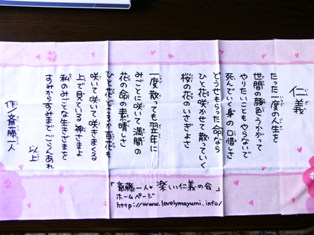 仁義
たった一度の人生を
世間の顔色うかがって
やりたいこともやらないで
死んでいく身の口惜しさ
どうせもらった命なら
ひと花咲かせて散っていく
桜の花のいさぎよさ
一度散っても翌年に
みごとに咲いて満開の
花の命の素晴しさ
ひと花どころか百花も
咲いて咲いて咲きまくる
上で見ている神さまよ
私のみごとな生きざまを
すみからすみまでごらんあれ
以上
作・斎藤一人
「斎藤一人 楽しい仁義の会」
ホームページ
http://www.lovelymayumi.info/